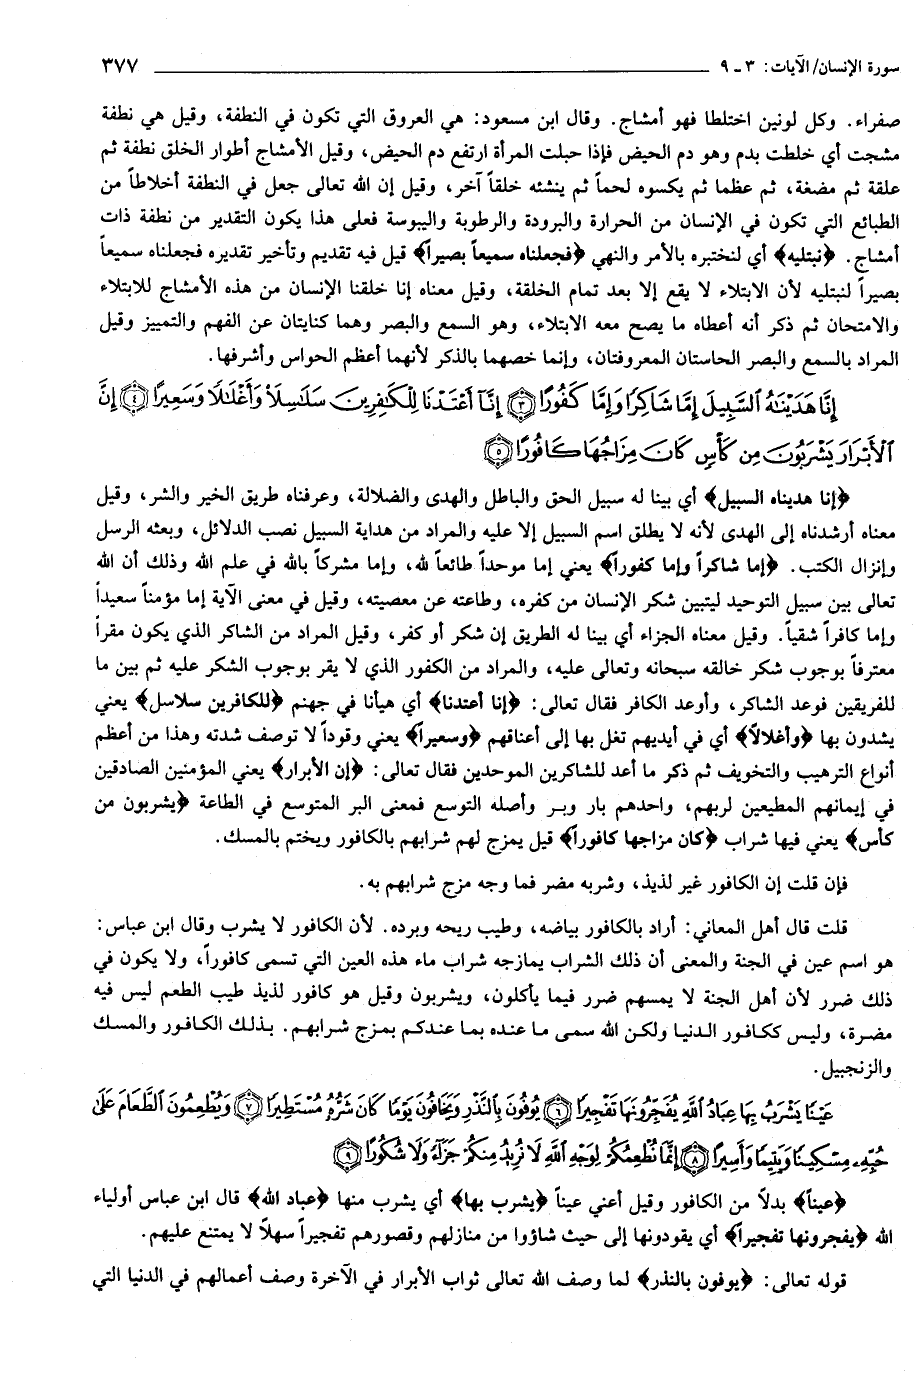 سورة الإنسان/ الآيات: ٣ ـ ٩ ٣٧٧
صفراء. وكل لونين اختلطا فهو أمشاج. وقال ابن مسعود: هي العروق التي تكون في النطفة، وقيل هي نطفة
مشجت أي خلطت بدم وهو دم الحيض فإذا حبلت المرأة ارتفع دم الحيض، وقيل الأمشاج أطوار الخلق نطفة ثم
علقة ثم مضغة، ثم عظما ثم يكسوه لحماً ثم ينشئه خلقاً آخر، وقيل إن الله تعالى جعل في النطفة أخلاطاً من
الطبائع التي تكون في الإنسان من الحرارة والبرودة والرطوبة واليبوسة فعلى هذا يكون التقدير من نطفة ذات
أمشاج. ﴿نبتليه﴾ أي لنختبره بالأمر والنهي ﴿فجعلناه سميعاً بصيراً﴾ قيل فيه تقديم وتأخير تقديره فجعلناه سميعاً
بصيراً لنبتليه لأن الابتلاء لا يقع إلا بعد تمام الخلقة، وقيل معناه إنا خلقنا الإنسان من هذه الأمشاج للابتلاء
والامتحان ثم ذكر أنه أعطاه ما يصح معه الابتلاء، وهو السمع والبصر وهما كنايتان عن الفهم والتمييز وقيل
المراد بالسمع والبصر الحاستان المعروفتان، وإنما خصهما بالذكر لأنهما أعظم الحواس وأشرفها.
إِنَّا هَدَيْنَٰهُ ٱلسَّبِيلَ إِمَّا شَاكِرًا وَإِمَّا كَفُورًا ﴿٣﴾ إِنَّآ أَعْتَدْنَا لِلْكَٰفِرِينَ سَلَٰسِلَا۟ وَأَغْلَٰلًا وَسَعِيرًا ﴿٤﴾ إِنَّ
ٱلْأَبْرَارَ يَشْرَبُونَ مِن كَأْسٍ كَانَ مِزَاجُهَا كَافُورًا ﴿٥﴾
﴿إنا هديناه السبيل﴾ أي بينا له سبيل الحق والباطل والهدى والضلالة، وعرفناه طريق الخير والشر، وقيل
معناه أرشدناه إلى الهدى لأنه لا يطلق اسم السبيل إلا عليه والمراد من هداية السبيل نصب الدلائل، وبعثه الرسل
وإنزال الكتب. ﴿إما شاكراً وإما كفوراً﴾ يعني إما موحداً طائعاً لله، وإما مشركاً بالله في علم الله وذلك أن الله
تعالى بين سبيل التوحيد ليتبين شكر الإنسان من كفره، وطاعته عن معصيته، وقيل في معنى الآية إما مؤمناً سعيداً
وإما كافراً شقياً. وقيل معناه الجزاء أي بينا له الطريق إن شكر أو كفر، وقيل المراد من الشاكر الذي يكون مقراً
معترفاً بوجوب شكر خالقه سبحانه وتعالى عليه، والمراد من الكفور الذي لا يقر بوجوب الشكر عليه ثم بين ما
للفريقين فوعد الشاكر، وأوعد الكافر فقال تعالى: ﴿إنا أعتدنا﴾ أي هيأنا في جهنم ﴿للكافرين سلاسل﴾ يعني
يشدون بها ﴿وأغلالاً﴾ أي في أيديهم تغل بها إلى أعناقهم ﴿وسعيراً﴾ يعني وقوداً لا توصف شدته وهذا من أعظم
أنواع الترهيب والتخويف ثم ذكر ما أعد للشاكرين الموحدين فقال تعالى: ﴿إن الأبرار﴾ يعني المؤمنين الصادقين
في إيمانهم المطيعين لربهم، واحدهم بار وبـر وأصله التوسع فمعنى البر المتوسع في الطاعة ﴿يشربون من
كأس﴾ يعني فيها شراب ﴿كان مزاجها كافوراً﴾ قيل يمزج لهم شرابهم بالكافور ويختم بالمسك.
فإن قلت إن الكافور غير لذيذ، وشربه مضر فما وجه مزج شرابهم به.
قلت قال أهل المعاني: أراد بالكافور بياضه، وطيب ريحه وبرده. لأن الكافور لا يشرب وقال ابن عباس:
هو اسم عين في الجنة والمعنى أن ذلك الشراب يمازجه شراب ماء هذه العين التي تسمى كافوراً، ولا يكون في
ذلك ضرر لأن أهل الجنة لا يمسهم ضرر فيما يأكلون، ويشربون وقيل هو كافور لذيذ طيب الطعم ليس فيه
مضرة، وليس ككافور الدنيا ولكن الله سمى ما عنده بما عندكم بمزج شرابهم. بذلك الكافور والمسك
والزنجبيل.
عَيْنًا يَشْرَبُ بِهَا عِبَادُ ٱللَّهِ يُفَجِّرُونَهَا تَفْجِيرًا ﴿٦﴾ يُوفُونَ بِٱلنَّذْرِ وَيَخَافُونَ يَوْمًا كَانَ شَرُّهُۥ مُسْتَطِيرًا ﴿٧﴾ وَيُطْعِمُونَ ٱلطَّعَامَ عَلَىٰ
حُبِّهِۦ مِسْكِينًا وَيَتِيمًا وَأَسِيرًا ﴿٨﴾ إِنَّمَا نُطْعِمُكُمْ لِوَجْهِ ٱللَّهِ لَا نُرِيدُ مِنكُمْ جَزَآءً وَلَا شُكُورًا ﴿٩﴾
﴿عيناً﴾ بدلاً من الكافور وقيل أعني عيناً ﴿يشرب بها﴾ أي يشرب منها ﴿عباد الله﴾ قال ابن عباس أولياء
الله ﴿يفجرونها تفجيراً﴾ أي يقودونها إلى حيث شاؤوا من منازلهم وقصورهم تفجيراً سهلاً لا يمتنع عليهم.
قوله تعالى: ﴿يوفون بالنذر﴾ لما وصف الله تعالى ثواب الأبرار في الآخرة وصف أعمالهم في الدنيا التي